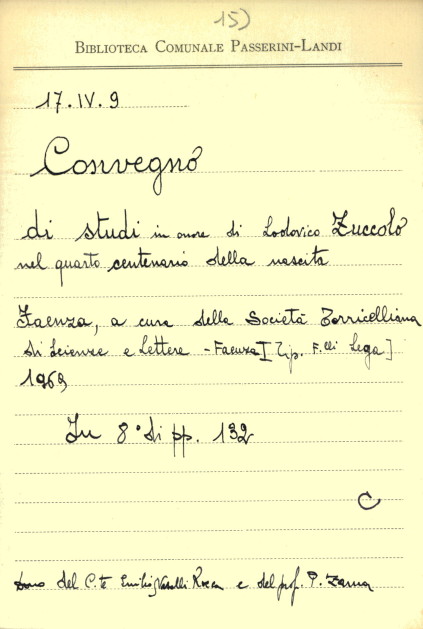 15)
BIBLIOTECA COMUNALE PASSERINI-LANDI
17.IV.9
Convegno
di studi in onore di Lodovico Zuccolo
nel quarto centenario della nascita
Faenza, a cura della Società Torricelliana
di Scienze e Lettere - Faenza [Tip. F.lli Lega]
1969
In 8° di pp. 132
C
Dono del C.te Emilio Nasalli Rocca e del prof. P. Zama